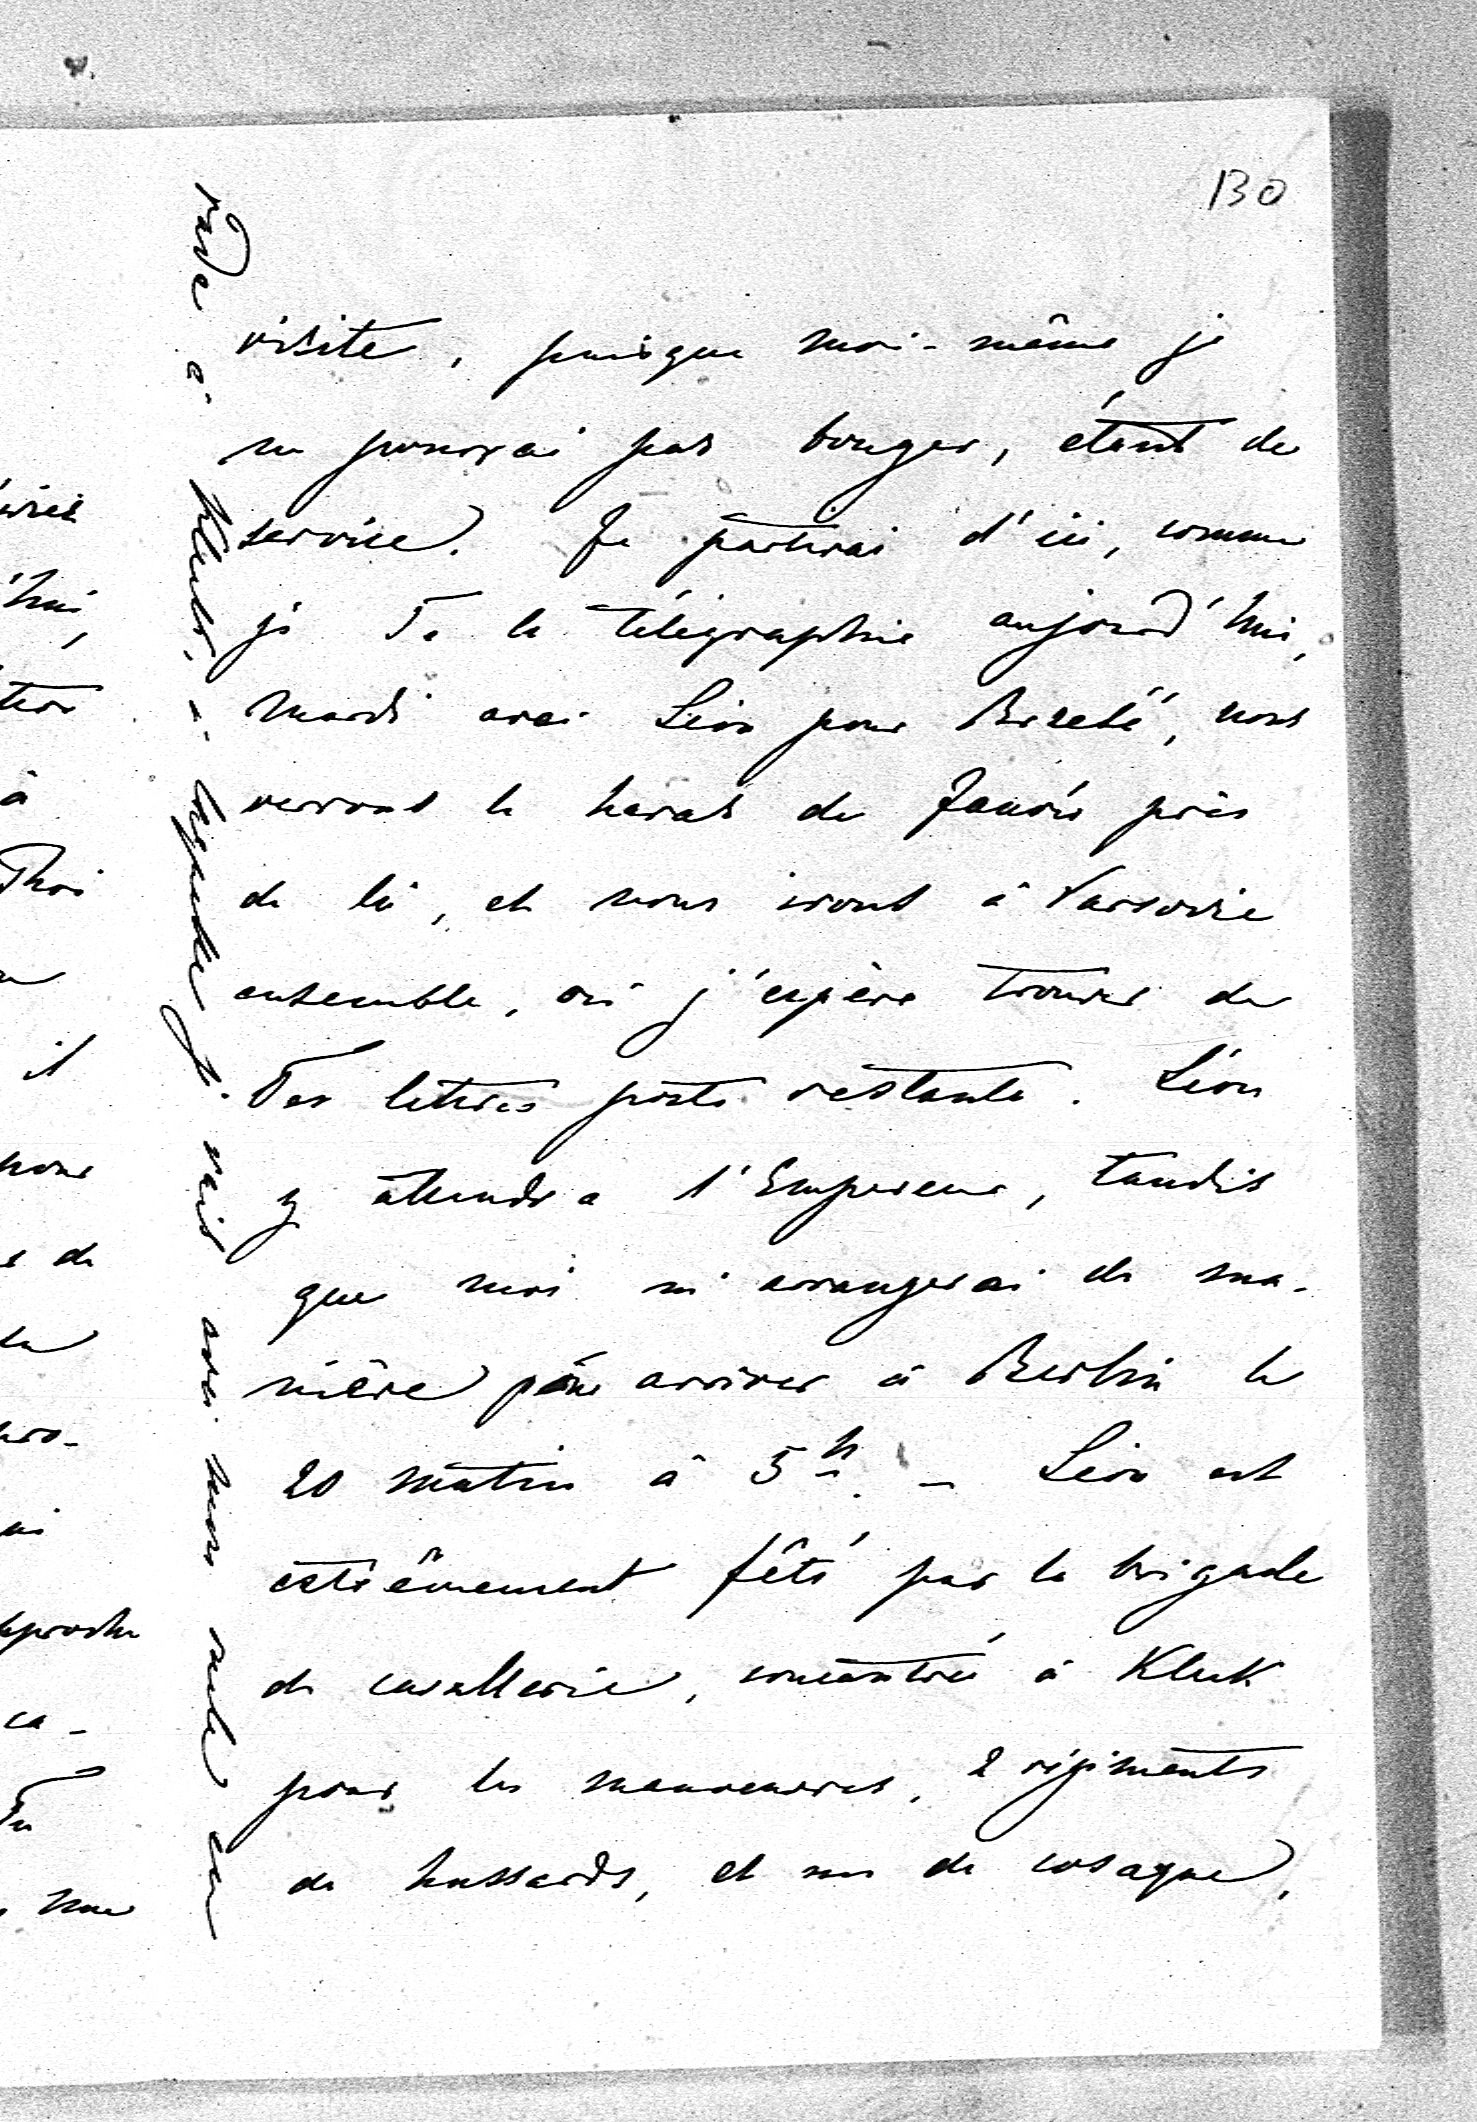 130
visite, puisque moi-même je
ne pourrai pas bouger, étant de
service. Je partirai d'ici, comme
je Te le télégraphie aujourd'hui,
mardi avec Léon pour Brześć, nous
verrons le haras de Janów près
de là, et nous irons à Varsovie
ensemble, où j'espère trouver de
Tes lettres poste restante. Léon
y attendra l'Empereur, tandis
que moi m'arrangerai de ma-
nière pour arriver à Berlin le
20 matin à 5h. – Léon est
extrêmement fêté par la brigade
de cavallerie, concentrée à Kluk
pour les manoeuvres, 2 régiments
de hussards, et un de cosaques,
à
il
à
s de
la
pro-
ca-
Tu